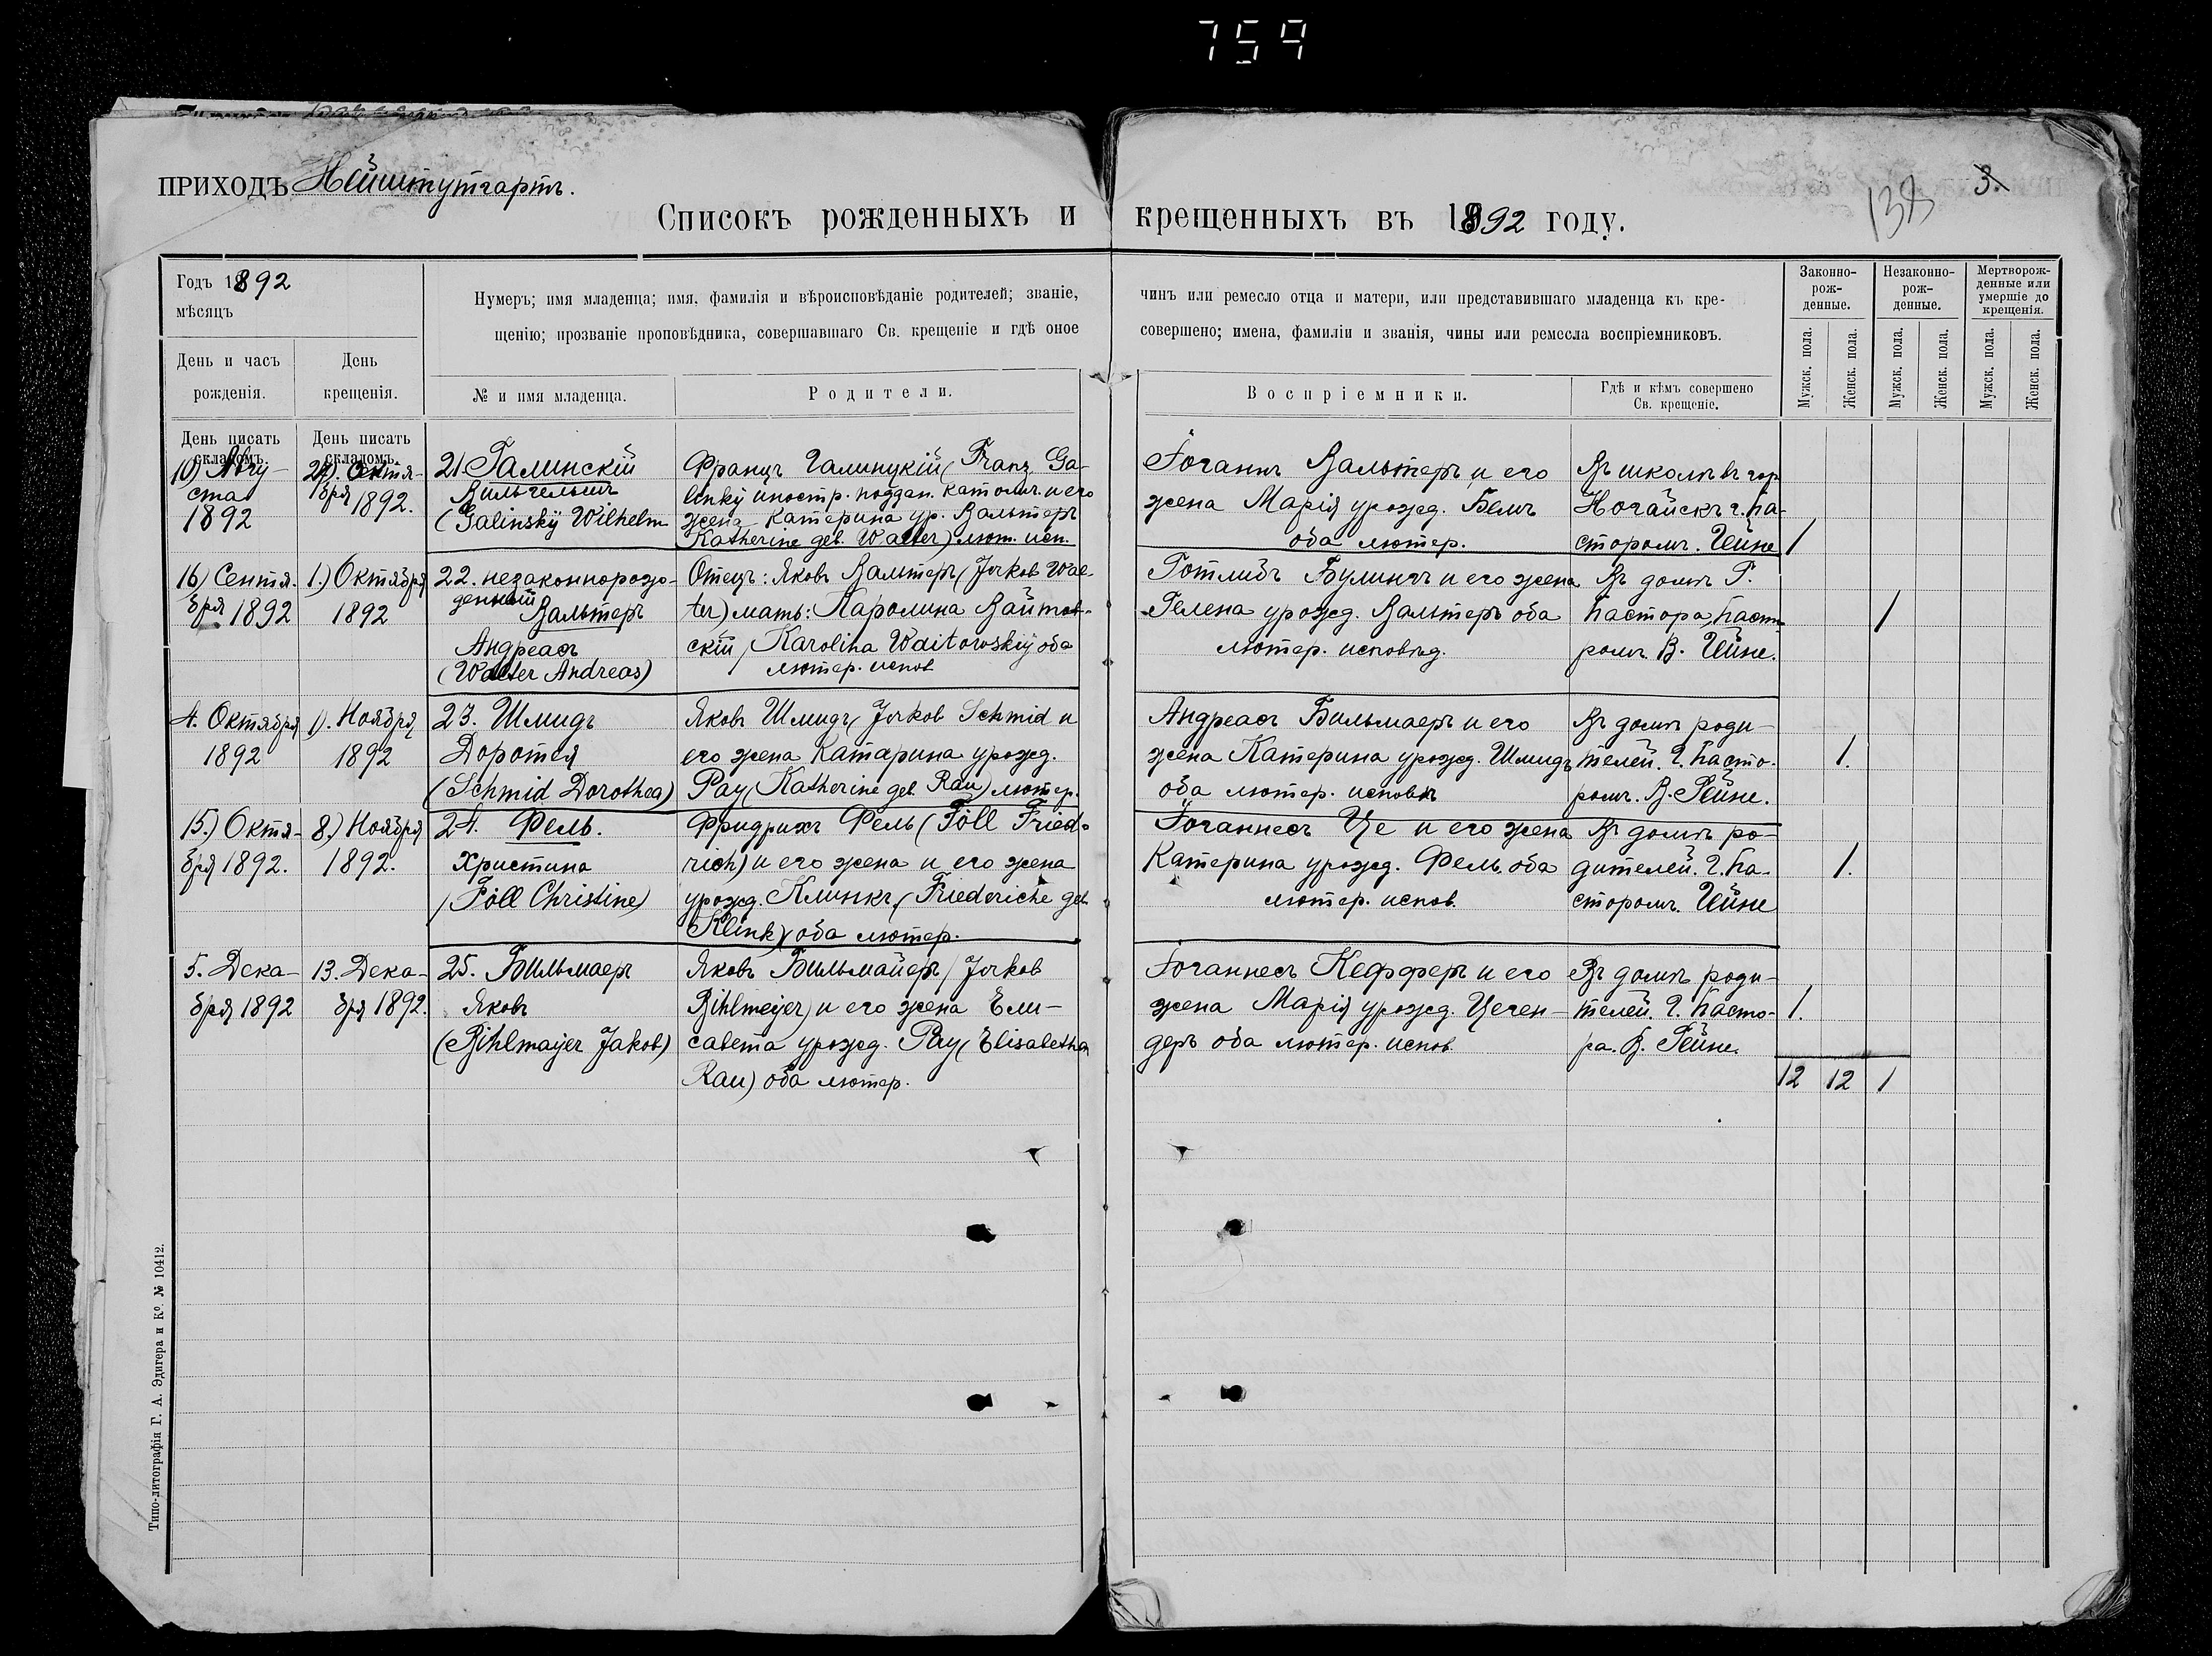 759
ПРИХОДЪ Нейштутгартъ.
138
3.
Списокъ рожденныхъ и крещенныхъ въ 1892 году.
Годъ 1892
мѣсяцъ
День и часъ
рожденія.
День
крещенія.
Нумеръ; имя младенца; имя, фамилія и вѣроисповѣданіе родителей; званіе,
щенію; прозваніе проповѣдника, совершавшаго Св. крещеніе и гдѣ оное
чинъ или ремесло отца и матери, или представившаго младенца къ кре-
совершено; имена, фамиліи и званія, чины или ремесла воспріемниковъ.
№ и имя младенца.
Родители.
Воспріемники.
Гдѣ и кѣмъ совершено
Св. крещеніе.
Законно-
рож-
денные.
Незаконно-
рож-
денные.
Мертворож-
денные или
умершіе до
крещенія.
Мужск. пола.
Женск. пола.
Мужск. пола.
Женск. пола.
Мужск. пола.
Женск. пола.
День писать
складомъ.
День писать
складомъ.
10) Авгу-
ста
1892
Октя-
бря 1892.
21. Галинскій
Вильгельмъ
(Galinskÿ Wilhelm
Францъ Галинцкій (Franz Ga-
linkÿ иностр. поддан. католич. и его
жена Катерина ур. Вальтеръ
Katherine geb. Walter) лют. исп.
Іоганнъ Вальтеръ и его
жена Марія урожд. Бемъ
оба лютер.
Въ школѣ въ гор
Ногайскъ г. Па-
сторомъ. Гейне
1
16) Сентя-
бря 1892
1.) Октября
1892
22. незаконнорож-
денный
Вальтеръ
Андреасъ
(Walter Andreas)
Отецъ: Яковъ Вальтеръ (Jakob Wal-
ter) мать: Каролина Вайтов-
скій, Karolina Waitowskÿ оба
лютер. испов
Готлибъ Булингъ и его жена
Гелена урожд. Вальтеръ оба
лютер. исповѣд.
Въ домѣ Г.
Пастора, Паст-
ромъ. В. Гейне.
1
4. Октября
1892
1). Ноября
1892
23. Шмидъ
Доротея
(Schmid Dorothea)
Яковъ Шмидъ (Jakob Schmid и
его жена Катарина урожд.
Рау (Katherine geb. Rau) лютер.
Андреасъ Бильмаеръ и его
жена Катерина урожд. Шмидъ
оба лютер. исповѣ
Въ домѣ роди-
телей. Г. Пасто-
ромъ. В. Гейне.
1.
15.) Октя-
бря 1892.
8.) Ноября
1892.
24. Фель.
Христина
(Föll Christine)
Фридрихъ Фель (Föll Fried-
rich) и его жена и его жена
урожд. Клинкъ (Friederiche geb.
Klink) оба лютер.
Іоганнесъ Це и его жена
Катерина урожд. Фель. оба
лютер. испов.
Въ домѣ ро-
дителей. Г. Па-
сторомъ. Гейне
1.
5. Дека-
бря 1892
13. Дека-
бря 1892.
25. Бильмаеръ
Яковъ
(Bihlmaÿer Jakob)
Яковъ Бильмайеръ (Jakob
Bihlmeijer) и его жена Ели-
савета урожд. Рау (Elisabetha
Rau) оба лютер.
Іоганнесъ Кефферъ и его
жена Марія урожд. Цеген-
деръ оба лютер. испов.
Въ домѣ роди-
телей. Г. Пасто-
ра. В. Гейне.
1.
12 12 1
Типо-литографія Г. А. Эдигера и Кº. № 10412.